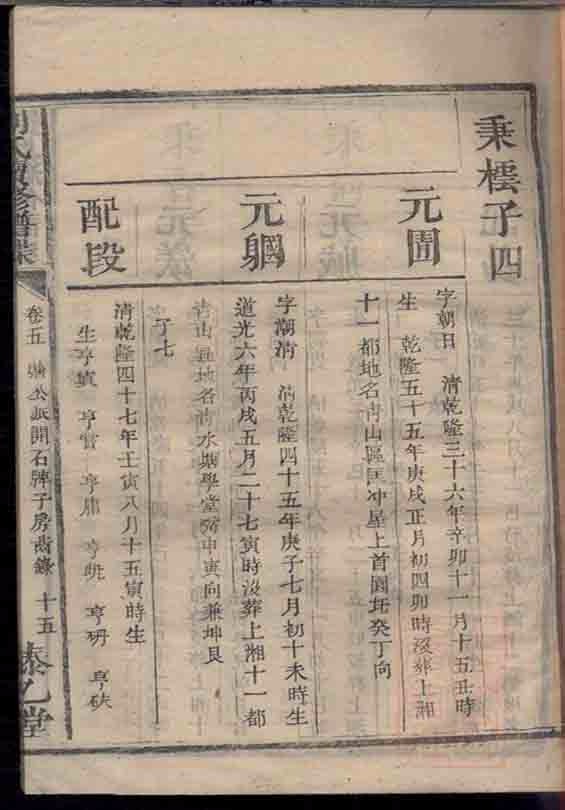 秉橒子四
元圃
字朝日 清乾隆三十六年辛卯十一月十五丑時
生 乾隆五十五年庚戌正月初四卯時沒葬上湘
十一都地名靑山區匡冲屋上首園圫癸丁向
元
字潮淸 淸乾隆四十五年庚子七月初十未時生
道光六年丙戌五月二十七寅時沒葬上湘十一都
靑山區地名淸水塘學堂灣申寅向兼坤艮
丁七
配段
淸乾隆四十七年壬寅八月十五寅時生
生亨寅 亨賞 亨庸 亨 亨硏 亨
氏續修譜
卷五 公派開石牌子房齒錄 十五 泰乙堂